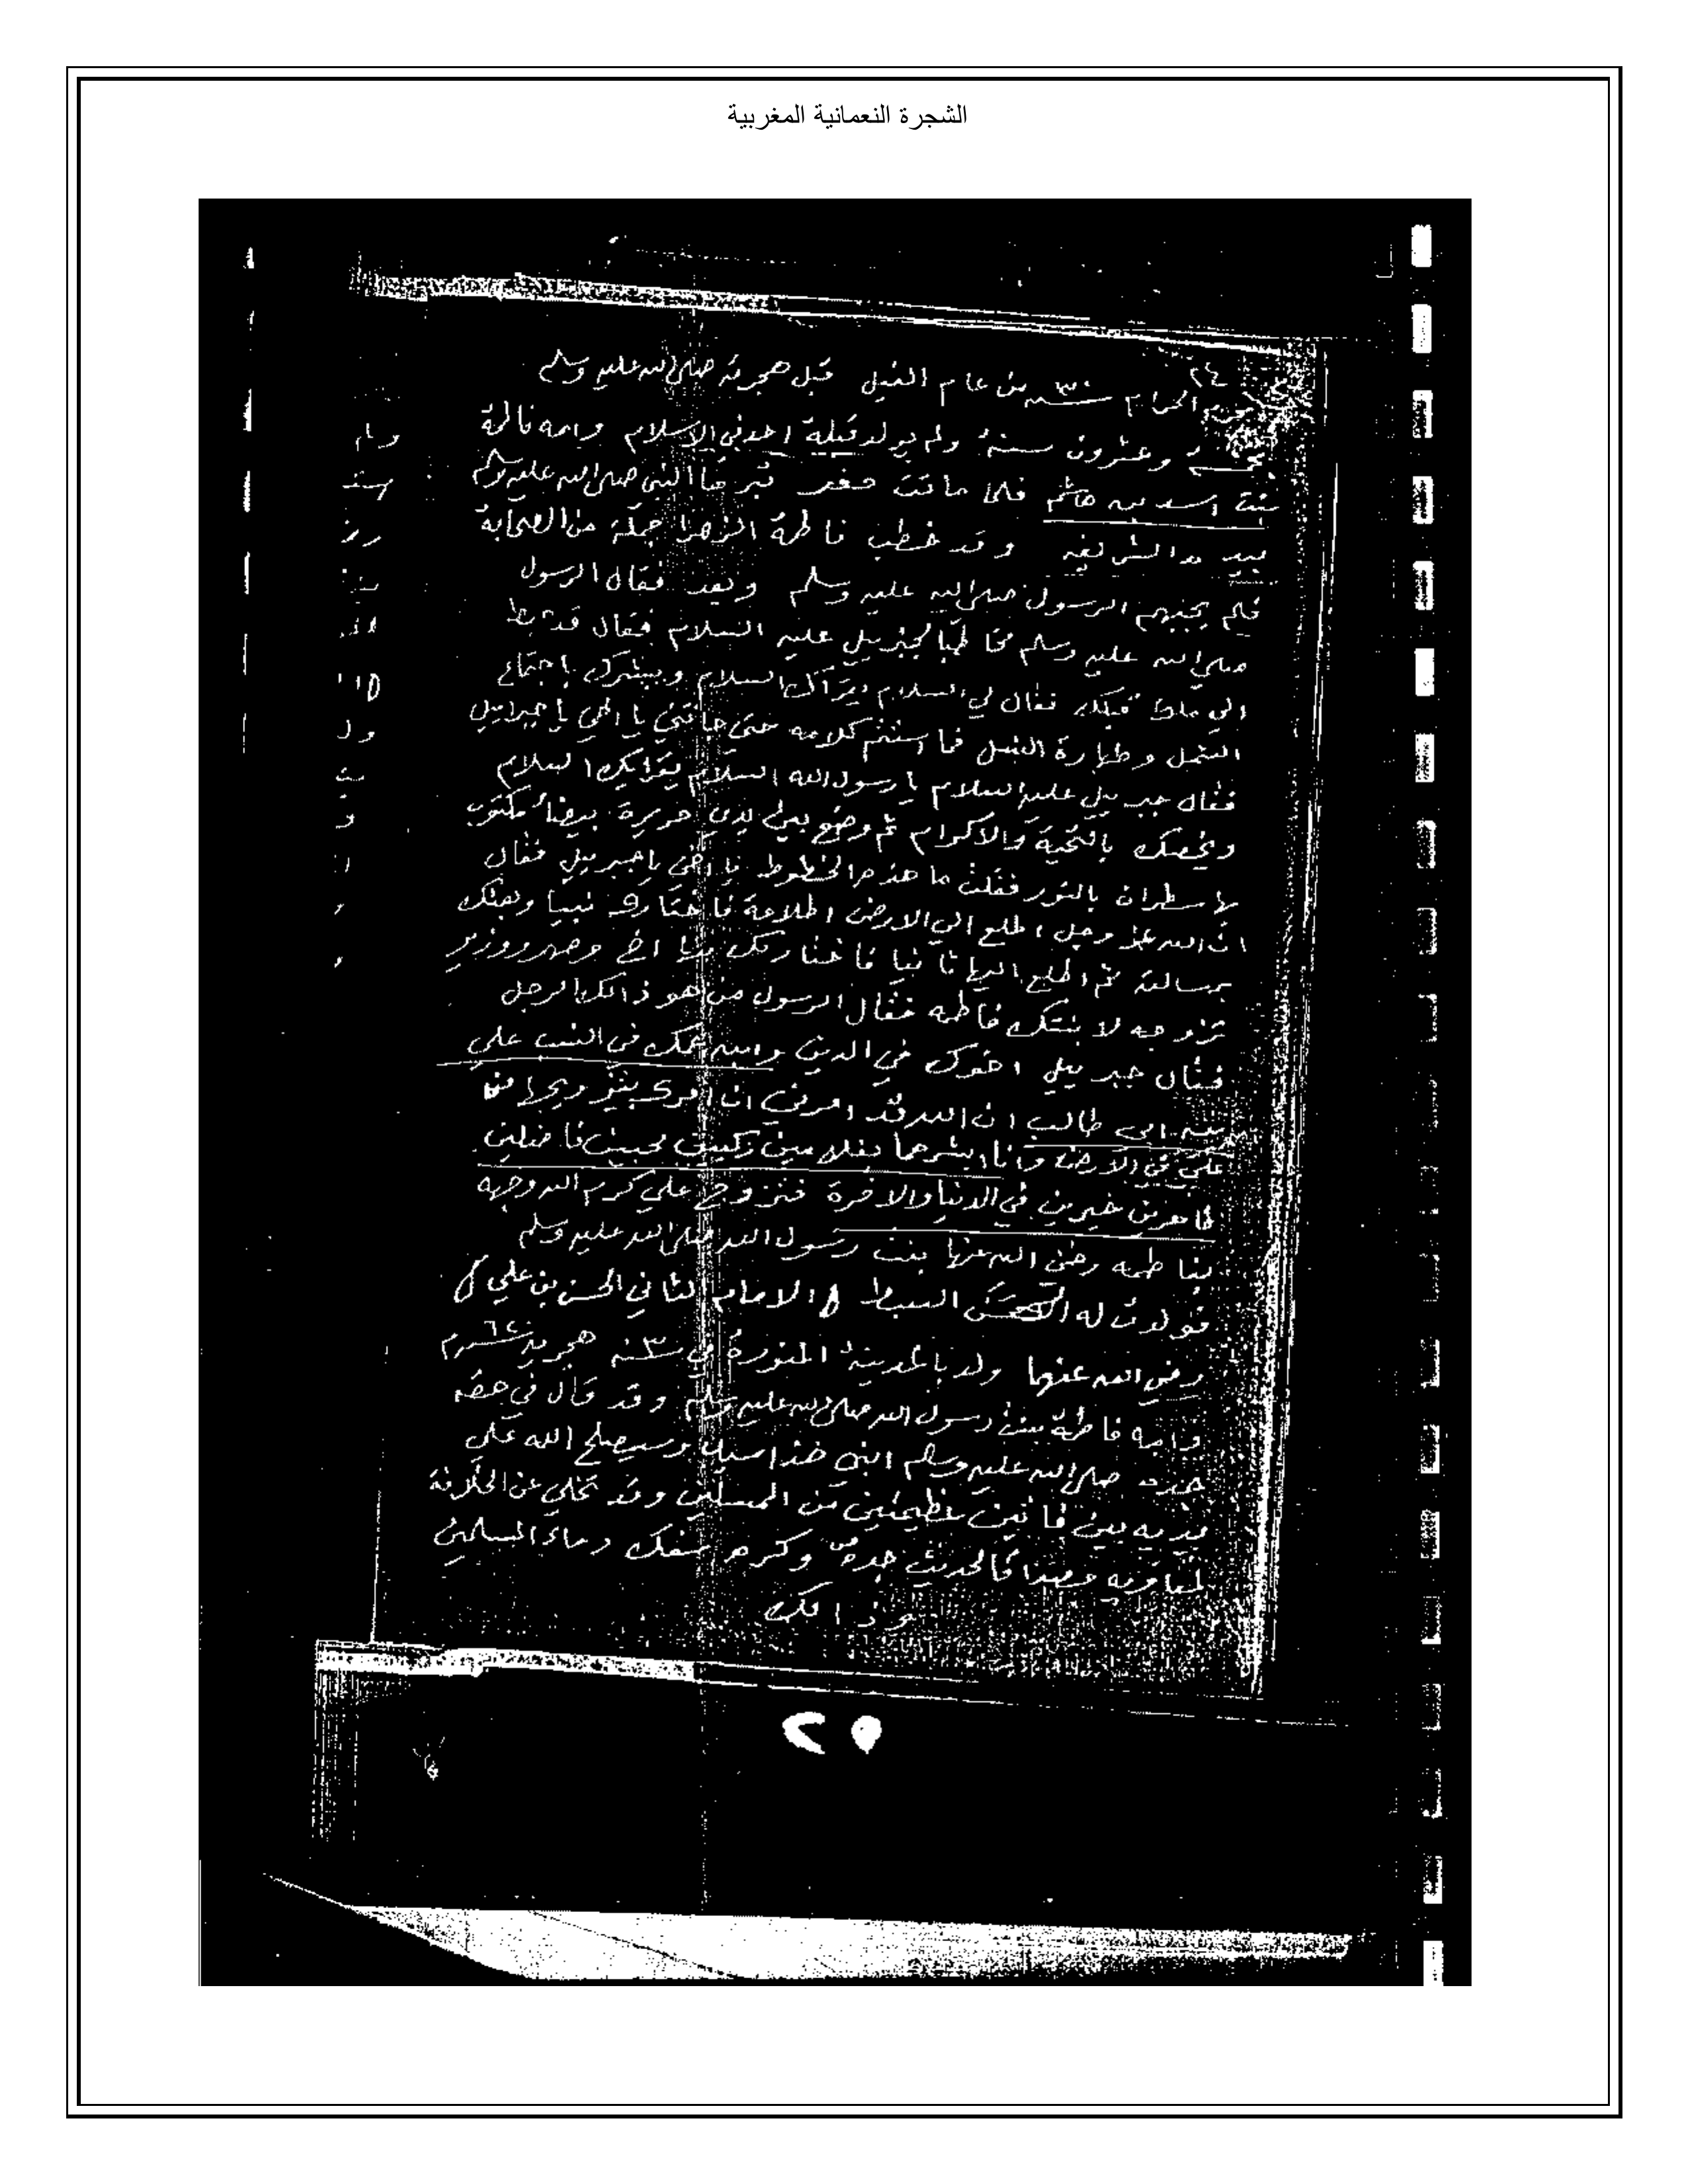 الشجرة النعمانية المغربية
٢٤
الحرام سنة ٣٠ من عام الفيل قبل هجرته صلى الله عليه وسلم
وعشرون سنة ولم يولد قبله احد في الاسلام وامه فاطمة
بنت اسد بن هاشم فلما ماتت النبي صلى الله عليه وسلم
بيده الشريفه وقد خطب فاطمة الزهرا جملة من الصحابة
فلم يجبهم الرسول صلى الله عليه وسلم وبعد فقال الرسول
صلى الله عليه وسلم مخاطبا لجبريل عليه السلام فقال قد هبط
الي ملك فقال لي السلام السلام ويبشرك باجتماع
الشمل وطهارة النسل فما استتم كلامه حتى يا اخي يا جبراييل
فقال جبرييل عليه السلام يا رسول الله السلام يقرايك السلام
ويخصك بالتحية والاكرام ثم وضع بين يدي حريرة بيضا مكتوب
بها سطران بالنور فقلت ما هذه الخطوط يا اخي يا جبرييل فقال
ان الله عز وجل اطلع الي الارض اطلاعة نبيا وبعثك
برسالته ثم اطلع اليها ثانيا فاختار لك منها اخ وصهر ووزير
تزوجه لابنتك فاطمه فقال الرسول من هو ذالك الرجل
فقال جبرييل اخوك في الدين وابن عمك في النسب علي
بن ابي طالب ان الله قد امرني ان امرك
علي في الارض وانا ابشرهما بغلامين زكيين نجيبين فاضلين
طاهرين خيرين في الدنيا والاخرة فتزوج علي كرم الله وجهه
بفاطمه رضي الله عنها بنت رسول الله صلى الله عليه وسلم
فولدت له الحسن السبط الامام الثاني الحسن بن علي
رضي الله عنهما ولد بالمدينة المنورة في سنة ٣ هجريه
وامه فاطمة بنت رسول الله صلى الله عليه وسلم وقد قال في حقه
جده صلى الله عليه وسلم ابني هذا سيد وسيصلح الله علي
يديه بين فاتين عظيمتين من المسلمين وقد تخلي عن الخلافة
لمعاويه مصداقا لحديث جده ص وكره سفك دماء المسلمين
وذالك
٢٥